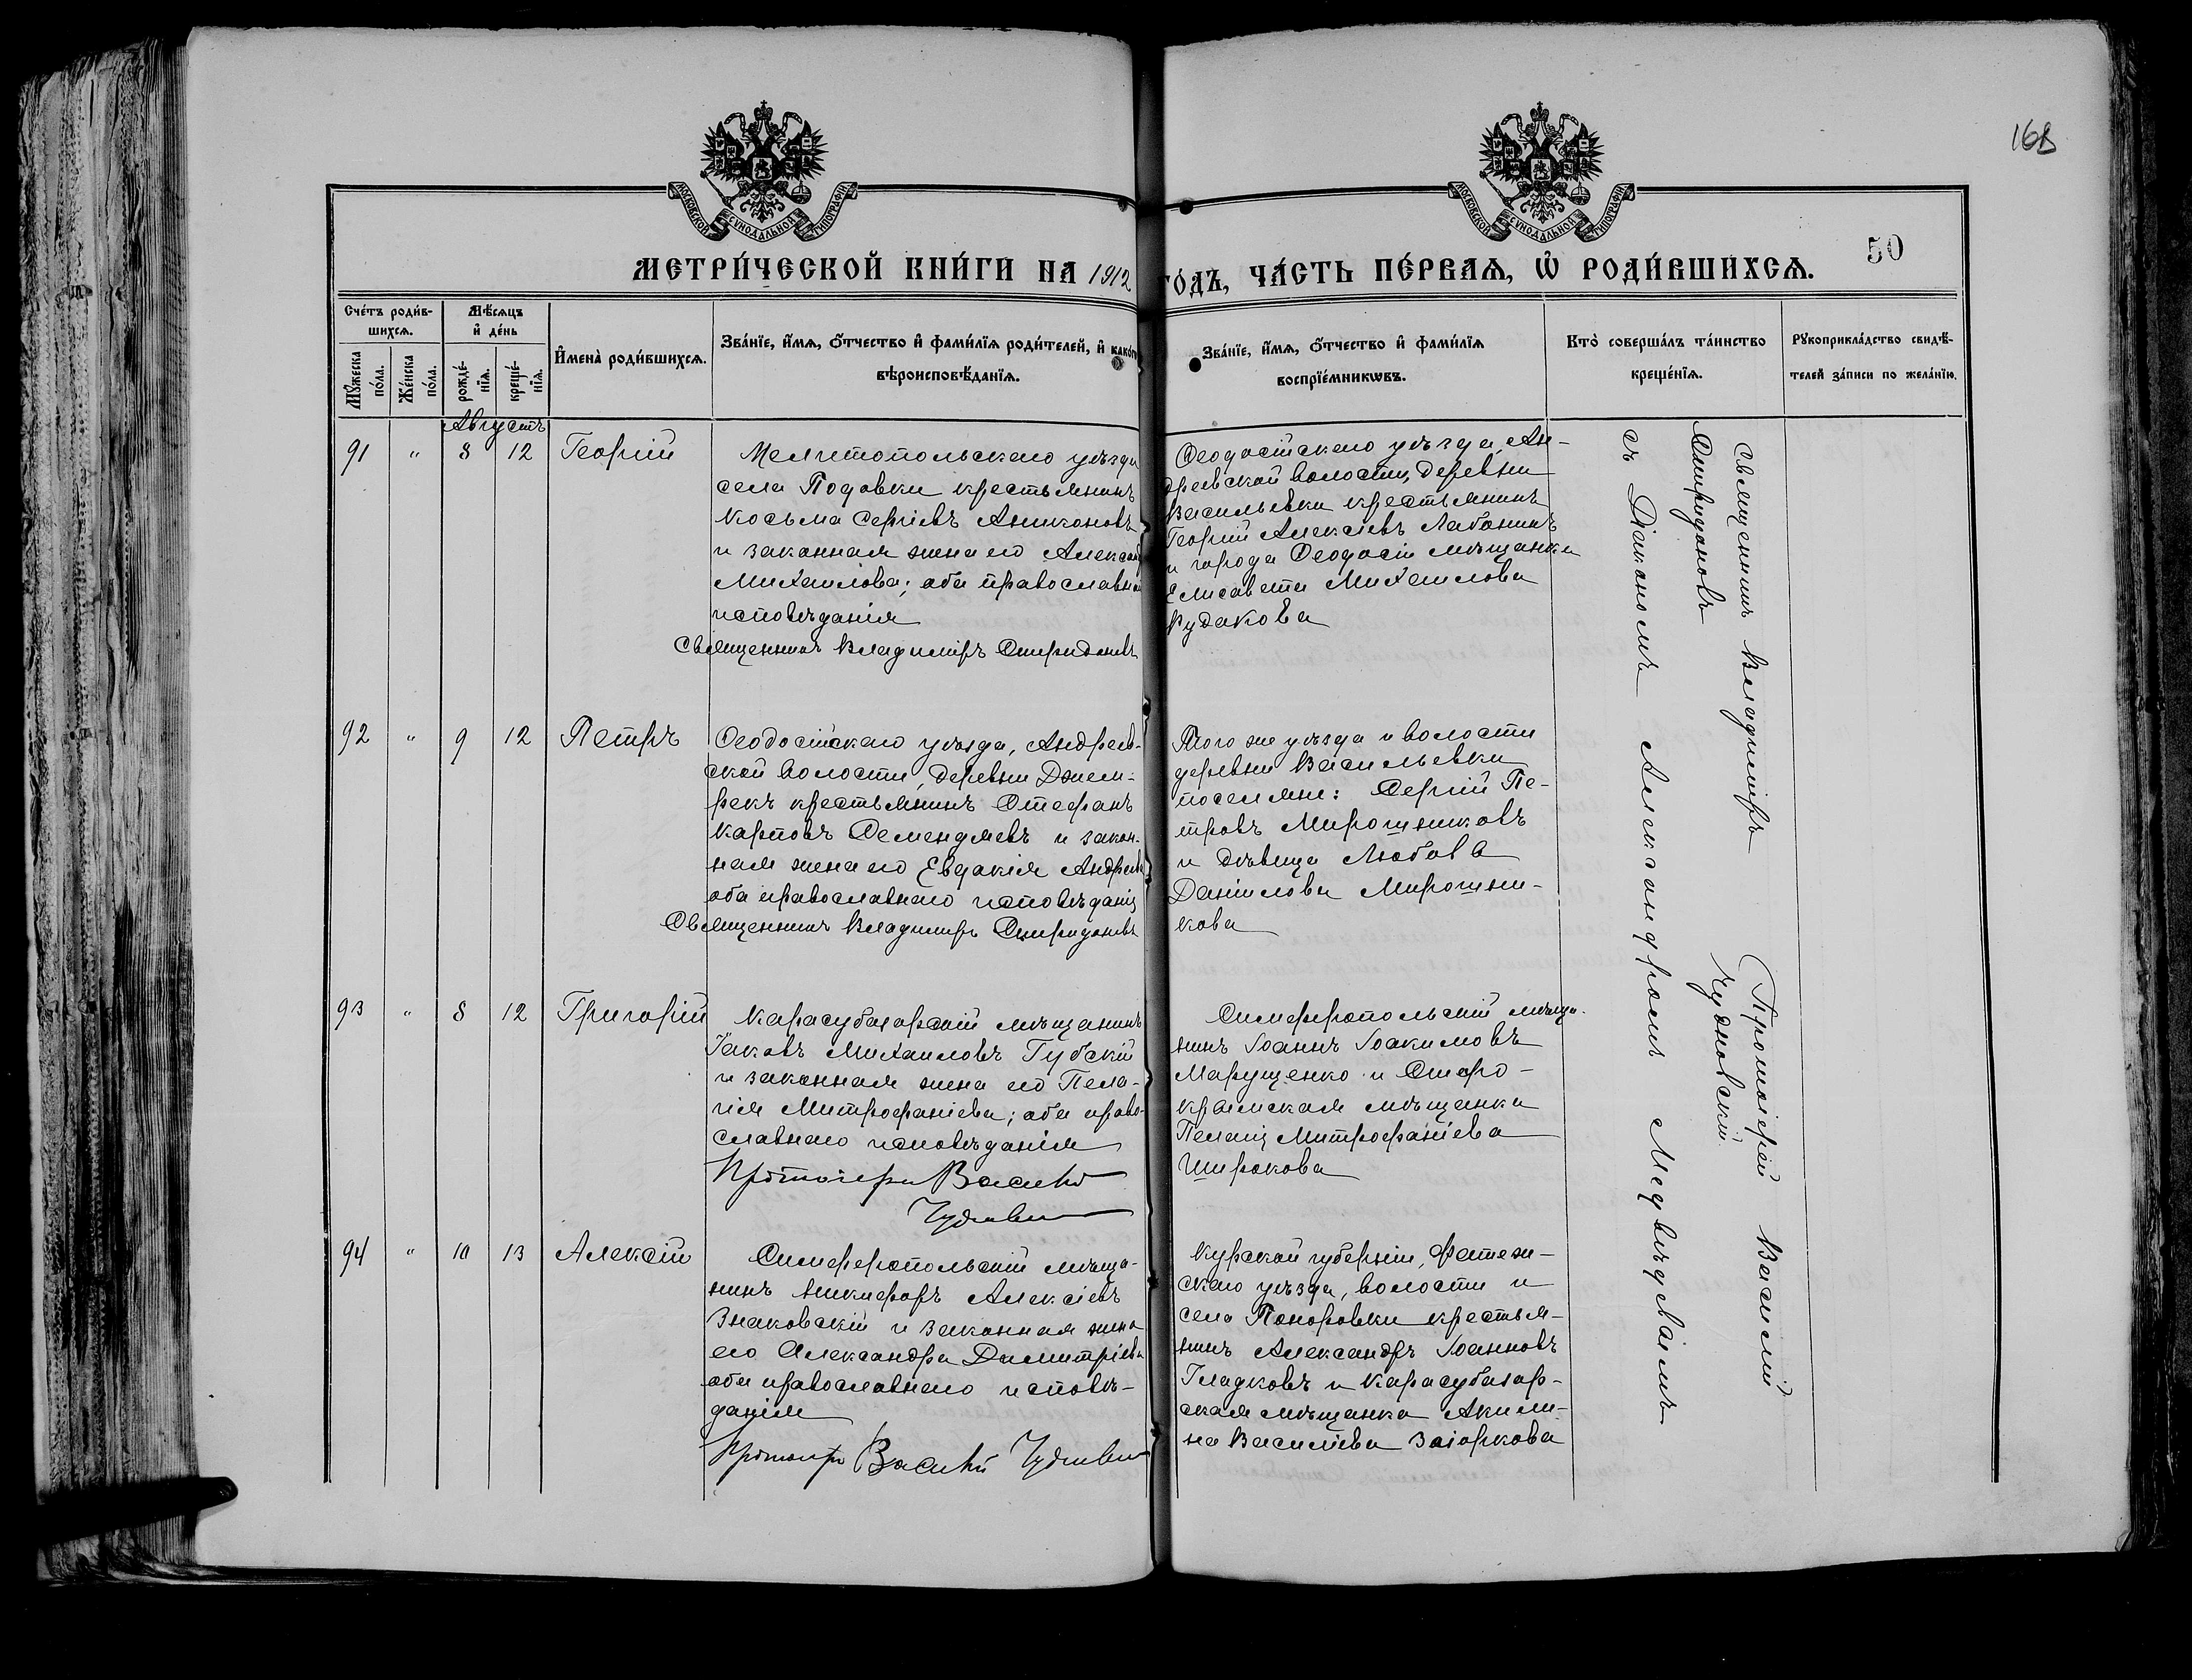 168
МОСКОВСКОЙ СѴНОДАЛЬНОЙ ТИПОГРАФІИ
МОСКОВСКОЙ СѴНОДАЛЬНОЙ ТИПОГРАФІИ
50
МЕТРИ́ЧЕСКОЙ КНИ́ГИ НА 1912
ГО́ДЪ, ЧА́СТЬ ПЕ́РВАѦ, Ѡ҆ РОДИ́ВШИХСѦ.
Сче́тъ роди́в-
шихсѧ.
Мꙋ́жеска по́ла.
Же́нска по́ла.
Мѣ́сѧцъ
и҆ де́нь
рожде́-
нїѧ.
креще́-
нїѧ.
И҆мена̀ роди́вшихсѧ.
Зва́нїе, и҆́мѧ, ѻ҆́тчество и҆ фами́лїѧ роди́телей, и҆ како́гѡ
вѣроисповѣ́данїѧ.
Зва́нїе, и҆́мѧ, ѻ҆́тчество и҆ фами́лїѧ
воспрїе́мникѡвъ.
Кто̀ соверша́лъ та́инство
креще́нїѧ.
Рꙋкоприкла́дство свидѣ́-
телей за́писи по жела́нїю.
Августъ
91 " 8 12 Георгій
Мелитопольскаго уѣзда
села Подовки крестьянинъ
Косьма Сергіевъ Аниконовъ
и законная жена его Александра
Михаилова; оба православнаго
исповѣданія
Священникъ Владиміръ Спиридоновъ
Ѳеодосійскаго уѣзда, Ан-
дреевской волости, деревни
Васильевки крестьянинъ
Георгій Алексіевъ Лабонинъ
и города Ѳеодосіи мѣщанка
Елисавета Михаилова
Рудакова
92 " 9 12 Петръ
Ѳеодосійскаго уѣзда, Андреев-
ской волости, деревни Джем-
рекъ крестьянинъ Стефанъ
Карповъ Семендяевъ и закон-
ная жена его Евдокія Андреева
оба православнаго исповѣданія
Священникъ Владиміръ Спиридоновъ
Того же уѣзда и волости
деревни Васильевки
поселяне: Сергій Пе-
тровъ Мирошниковъ
и дѣвица Любовь
Даніилова Мирошни-
кова
93 " 8 12 Григорій
Карасубазарскій мѣщанинъ
Іаковъ Михаиловъ Губскій
и законная жена его Пела-
гія Митрофаніева; оба право-
славнаго исповѣданія
Протоіерей Василій
Чудновскій
Симферопольскій мѣща-
нинъ Іоаннъ Іоакимовъ
Марущенко и Старо-
крымская мѣщанка
Пелагія Митрофаніева
Широкова
94 " 10 13 Алексій
Симферопольскій мѣща-
нинъ Никифоръ Алексіевъ
Знаковскій и законная жена
его Александра Димитріева
оба православнаго исповѣ-
данія
Протоіерей Василій Чудновскій
Курской губерніи, Фатеж-
скаго уѣзда, волости и
села Поноровки крестья-
нинъ Александръ Іоанновъ
Гладковъ и Карасубазар-
ская мѣщанка Акили-
на Василіева
Священникъ Владиміръ
Спиридоновъ
Протоіерей Василій
Чудновскій
съ Діакономъ Александромъ Медвѣдевымъ